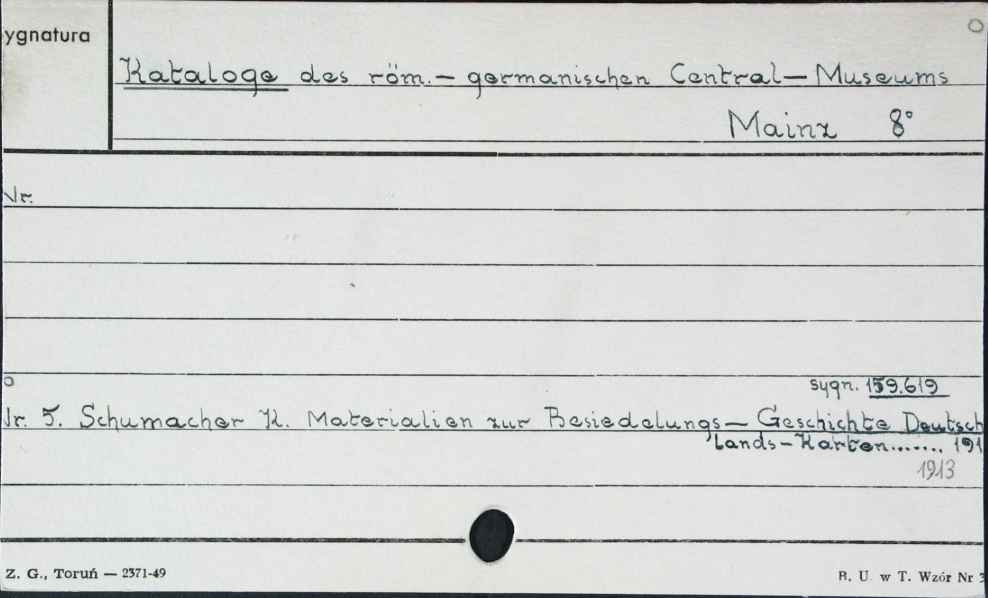 ygnatura
Kataloge des röm.- germanischen Central- Museums
Mainz 8°
Nr.
sygn. 159.619
Nr. 5. Schumacher K. Materialien zur Besiedelungs- Geschichte Deutsch
lands-Karten....... 191
1913
Z. G., Toruń — 2371-49
B. U. w T. Wzór Nr 3